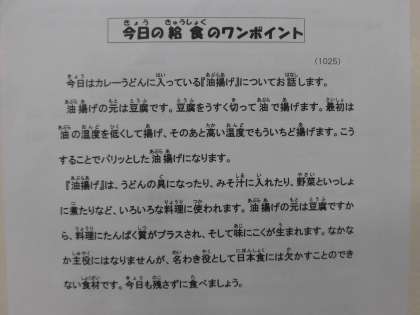 今日の給食のワンポイント
(1025)
今日はカレーうどんに入っている『油揚げ』についてお話します。
油揚げの元は豆腐です。豆腐をうすく切って油で揚げます。最初は
油の温度を低くして揚げ、そのあと高い温度でもういちど揚げます。こう
することでパリッとした油揚げになります。
『油揚げ』は、うどんの具になったり、みそ汁に入れたり、野菜といっしょ
に煮たりなど、いろいろな料理に使われます。油揚げの元は豆腐ですか
ら、料理にたんぱく質がプラスされ、そして味にこくが生まれます。なかな
か主役にはなりませんが、名わき役として日本食には欠かすことのでき
ない食材です。今日も残さずに食べましょう。